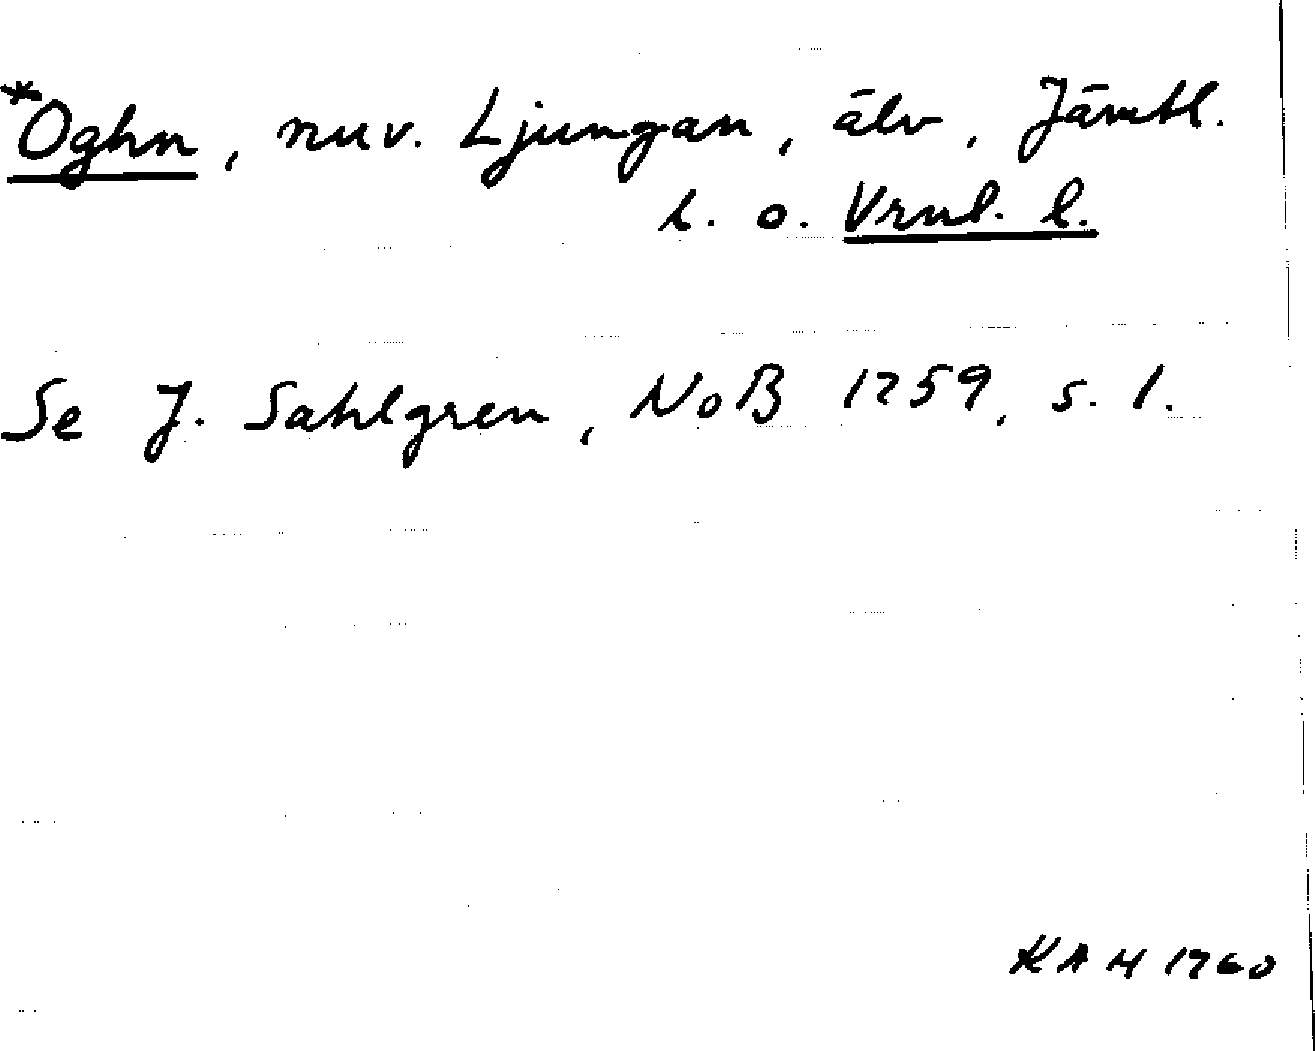 *Oghn, nuv. Ljungan, älv, Jämtl.
l. o. Vrnl. l.
Se J. Sahlgren, NoB 1959, s. 1.
KAH 1960